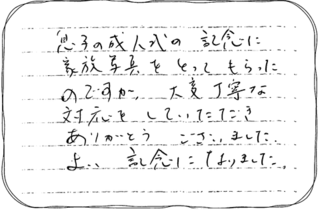 息子の成人式の 記念に
家族写真を とって もらった
のですが、大変丁寧な
対応を していただき
ありがとう ございました。
よい 記念になりました。